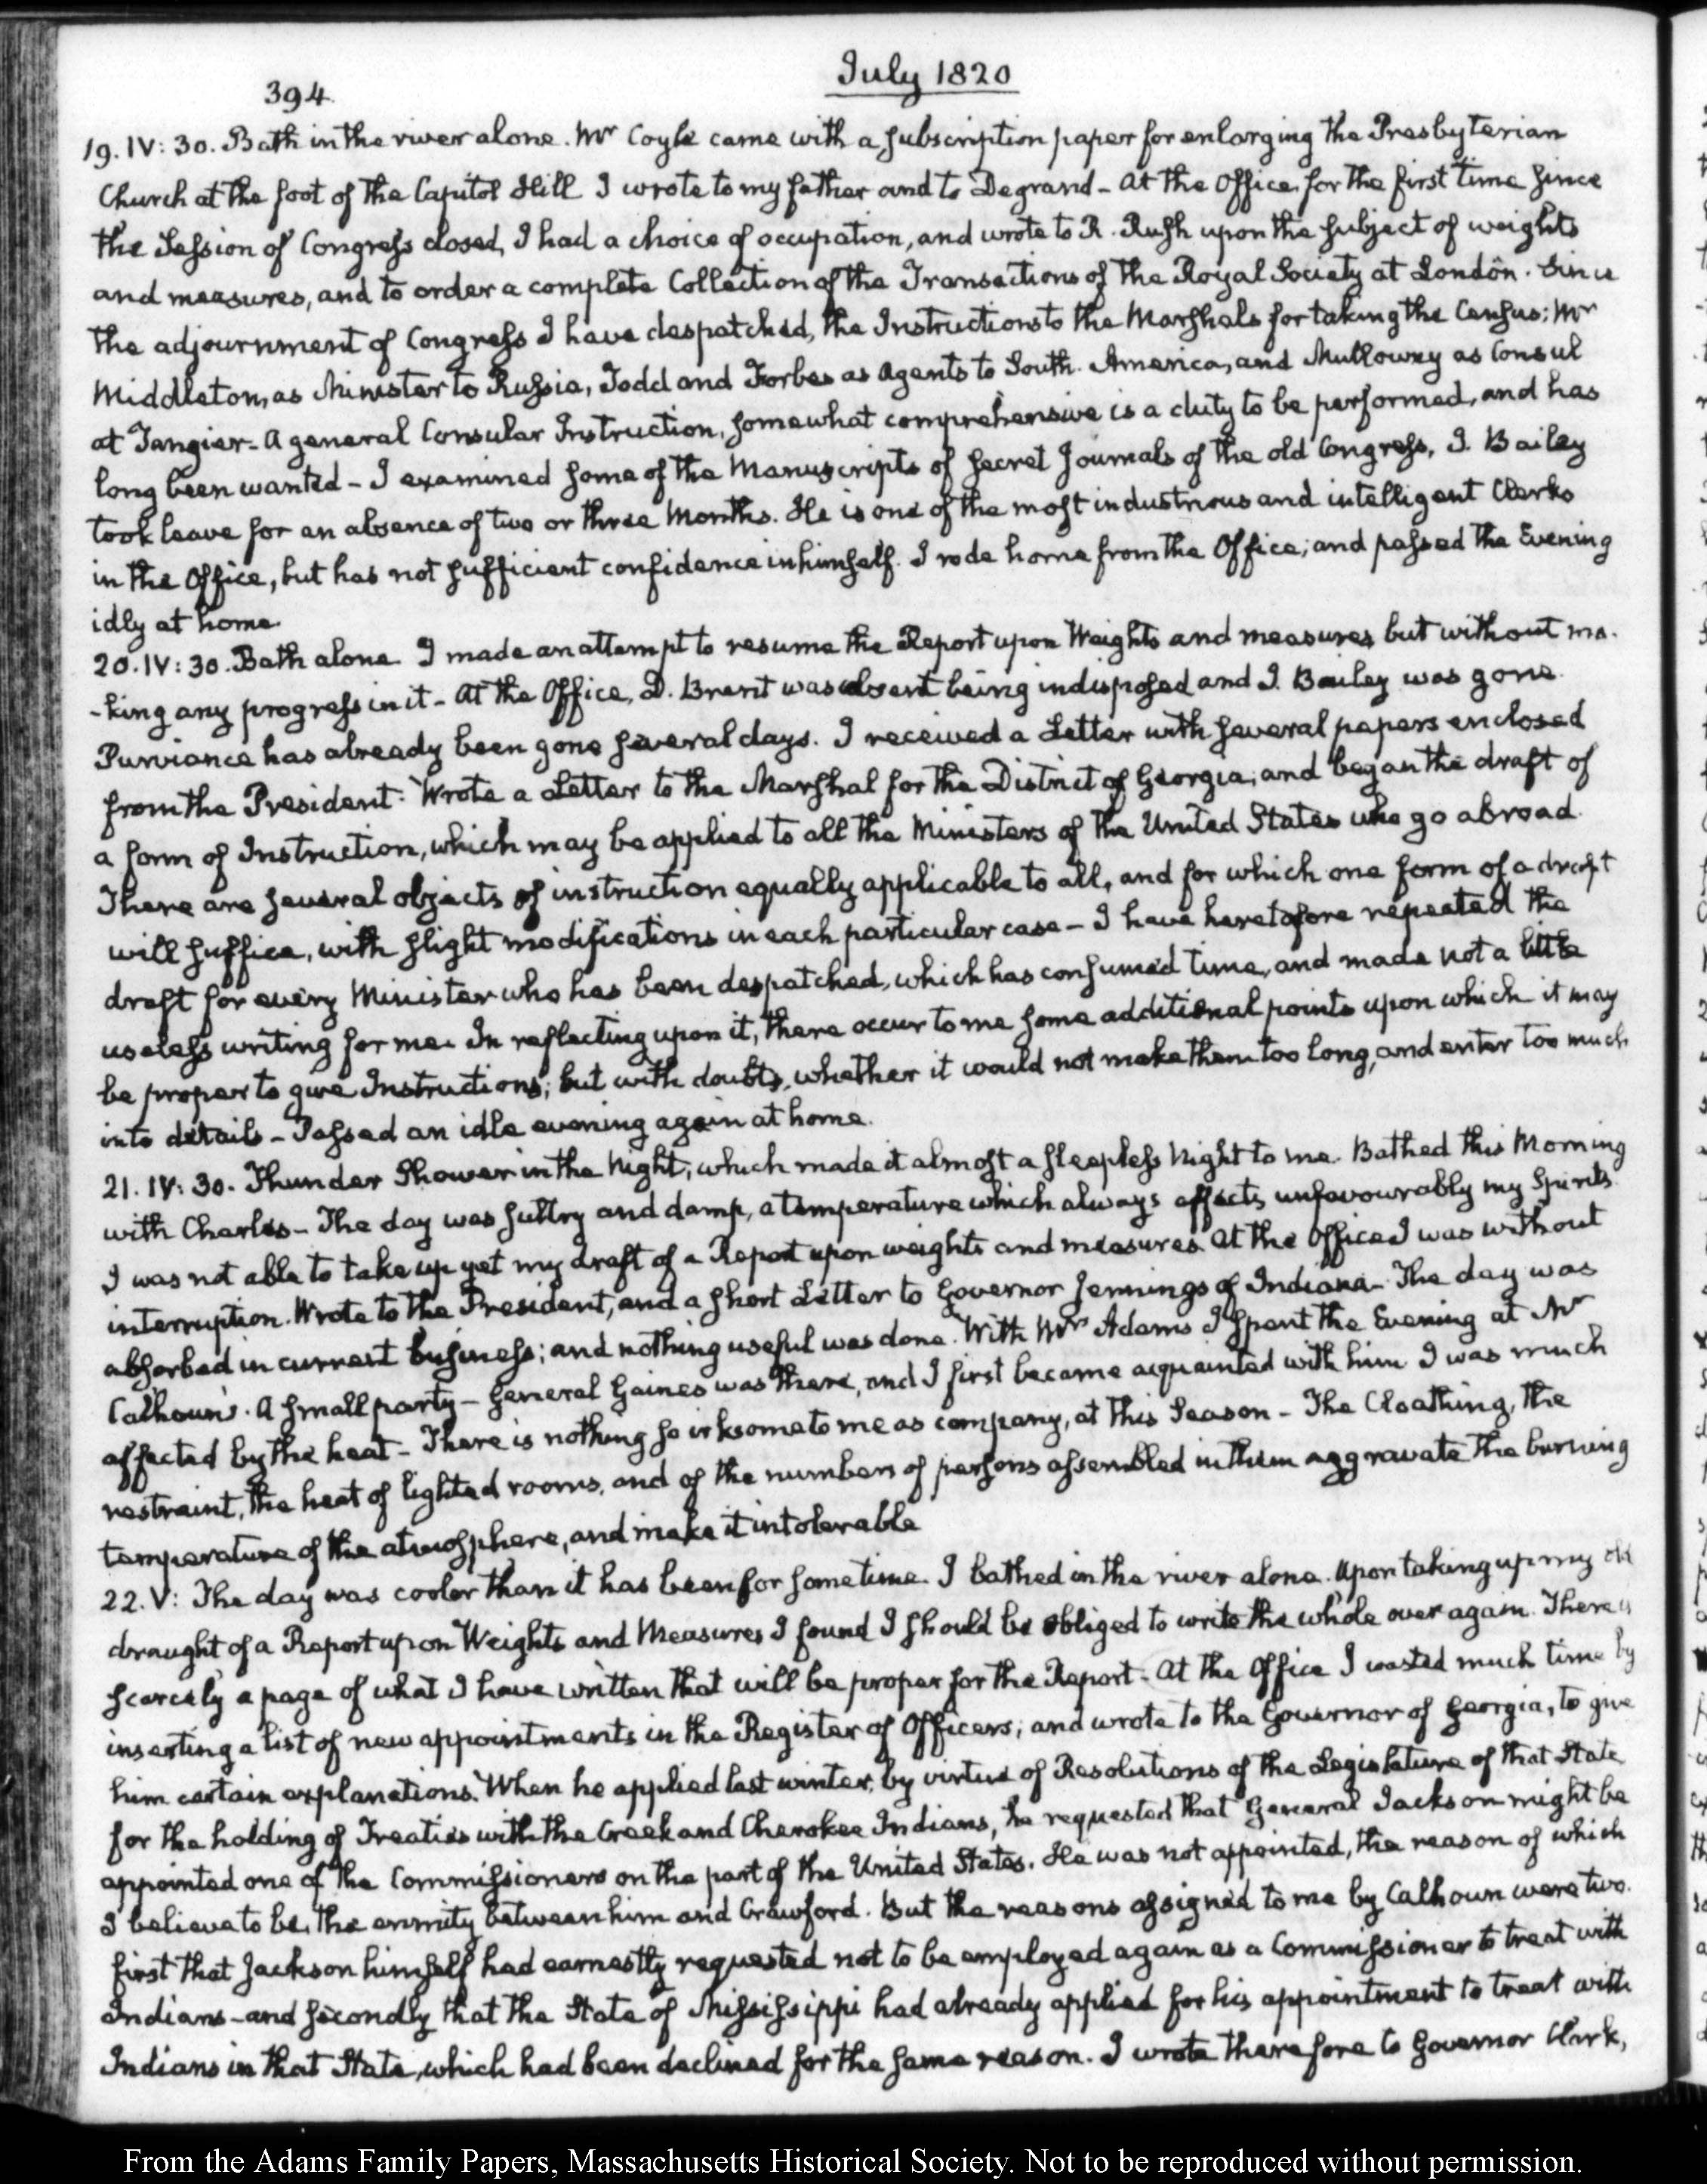 394
July 1820
19. IV: 30. Bath in the river alone. Mr Coyle came with a subscription paper for enlarging the Presbyterian
Church at the foot of the Capitol Hill I wrote to my father and to Degrand - At the Office, for the first time since
the Session of Congress closed, I had a choice of occupation, and wrote to R. Rush upon the subject of weights
and measures, and to order a complete Collection of the Transactions of the Royal Society at London. Since
the adjournment of Congress I have despatched, the Instructions to the Marshals for taking the Census; Mr
Middleton, as Minister to Russia, Todd and Forbes as Agents to South. America, and Mullowny as Consul
at Tangier - A general Consular Instruction, somewhat comprehensive is a duty to be performed, and has
long been wanted - I examined some of the Manuscripts of secret Journals of the old Congress, J. Bailey
took leave for an absence of two or three Months. He is one of the most industrious and intelligent Clerks
in the Office, but has not sufficient confidence in himself. I rode home from the Office; and passed the Evening
idly at home.
20. IV: 30. Bath alone. I made an attempt to resume the Report upon Weights and measures but without ma-
-king any progress in it - At the Office, D. Brent was absent being indisposed and J. Bailey was gone.
Purviance has already been gone several days. I received a Letter with several papers enclosed
from the President: Wrote a Letter to the Marshal for the District of Georgia; and began the draft of
a form of Instruction, which may be applied to all the Ministers of the United States who go abroad.
There are several objects of instruction equally applicable to all, and for which one form of a draft
will suffice, with slight modifications in each particular case - I have heretofore repeated the
draft for every Minister who has been despatched, which has consumed time, and made not a little
useless writing for me. In reflecting upon it, there occur to me some additional points upon which it may
be proper to give Instructions; but with doubts, whether it would not make them too long, and enter too much
into details - Passed an idle evening again at home.
21. IV: 30. Thunder Shower in the Night; which made it almost a sleepless Night to me. Bathed this Morning
with Charles - The day was sultry and damp, a temperature which always affects unfavourably my Spirits.
I was not able to take up yet my draft of a Report upon weights and measures. At the Office I was without
interruption. Wrote to the President, and a short Letter to Governor Jennings of Indiana - The day was
absorbed in current business; and nothing useful was done. With Mrs Adams I spent the Evening at Mr
Calhoun's. A small party - General Gaines was there, and I first became acquainted with him I was much
affected by the heat - There is nothing so irksome to me as company, at this Season - The Cloathing, the
restraint, the heat of lighted rooms, and of the numbers of persons assembled in them aggravate the burning
temperature of the atmosphere, and make it intolerable
22. V: The day was cooler than it has been for some time. I bathed in the river alone. Upon taking up my old
draught of a Report upon Weights and Measures I found I should be obliged to write the whole over again. There is
scarcely a page of what I have written that will be proper for the Report - At the Office I wasted much time by
inserting a list of new appointments in the Register of Officers; and wrote to the Governor of Georgia, to give
him certain explanations. When he applied last winter, by virtue of Resolutions of the Legislature of that State
for the holding of Treaties with the Creek and Cherokee Indians, he requested that General Jackson might be
appointed one of the Commissioners on the part of the United States. He was not appointed, the reason of which
I believe to be, the enmity between him and Crawford. But the reasons assigned to me by Calhoun were two.
first that Jackson himself had earnestly requested not to be employed again as a Commissioner to treat with
Indians - and secondly that the State of Mississippi had already applied for his appointment to treat with
Indians in that State, which had been declined for the same reason. I wrote therefore to Governor Clark,
From the Adams Family Papers, Massachusetts Historical Society. Not to be reproduced without permission.